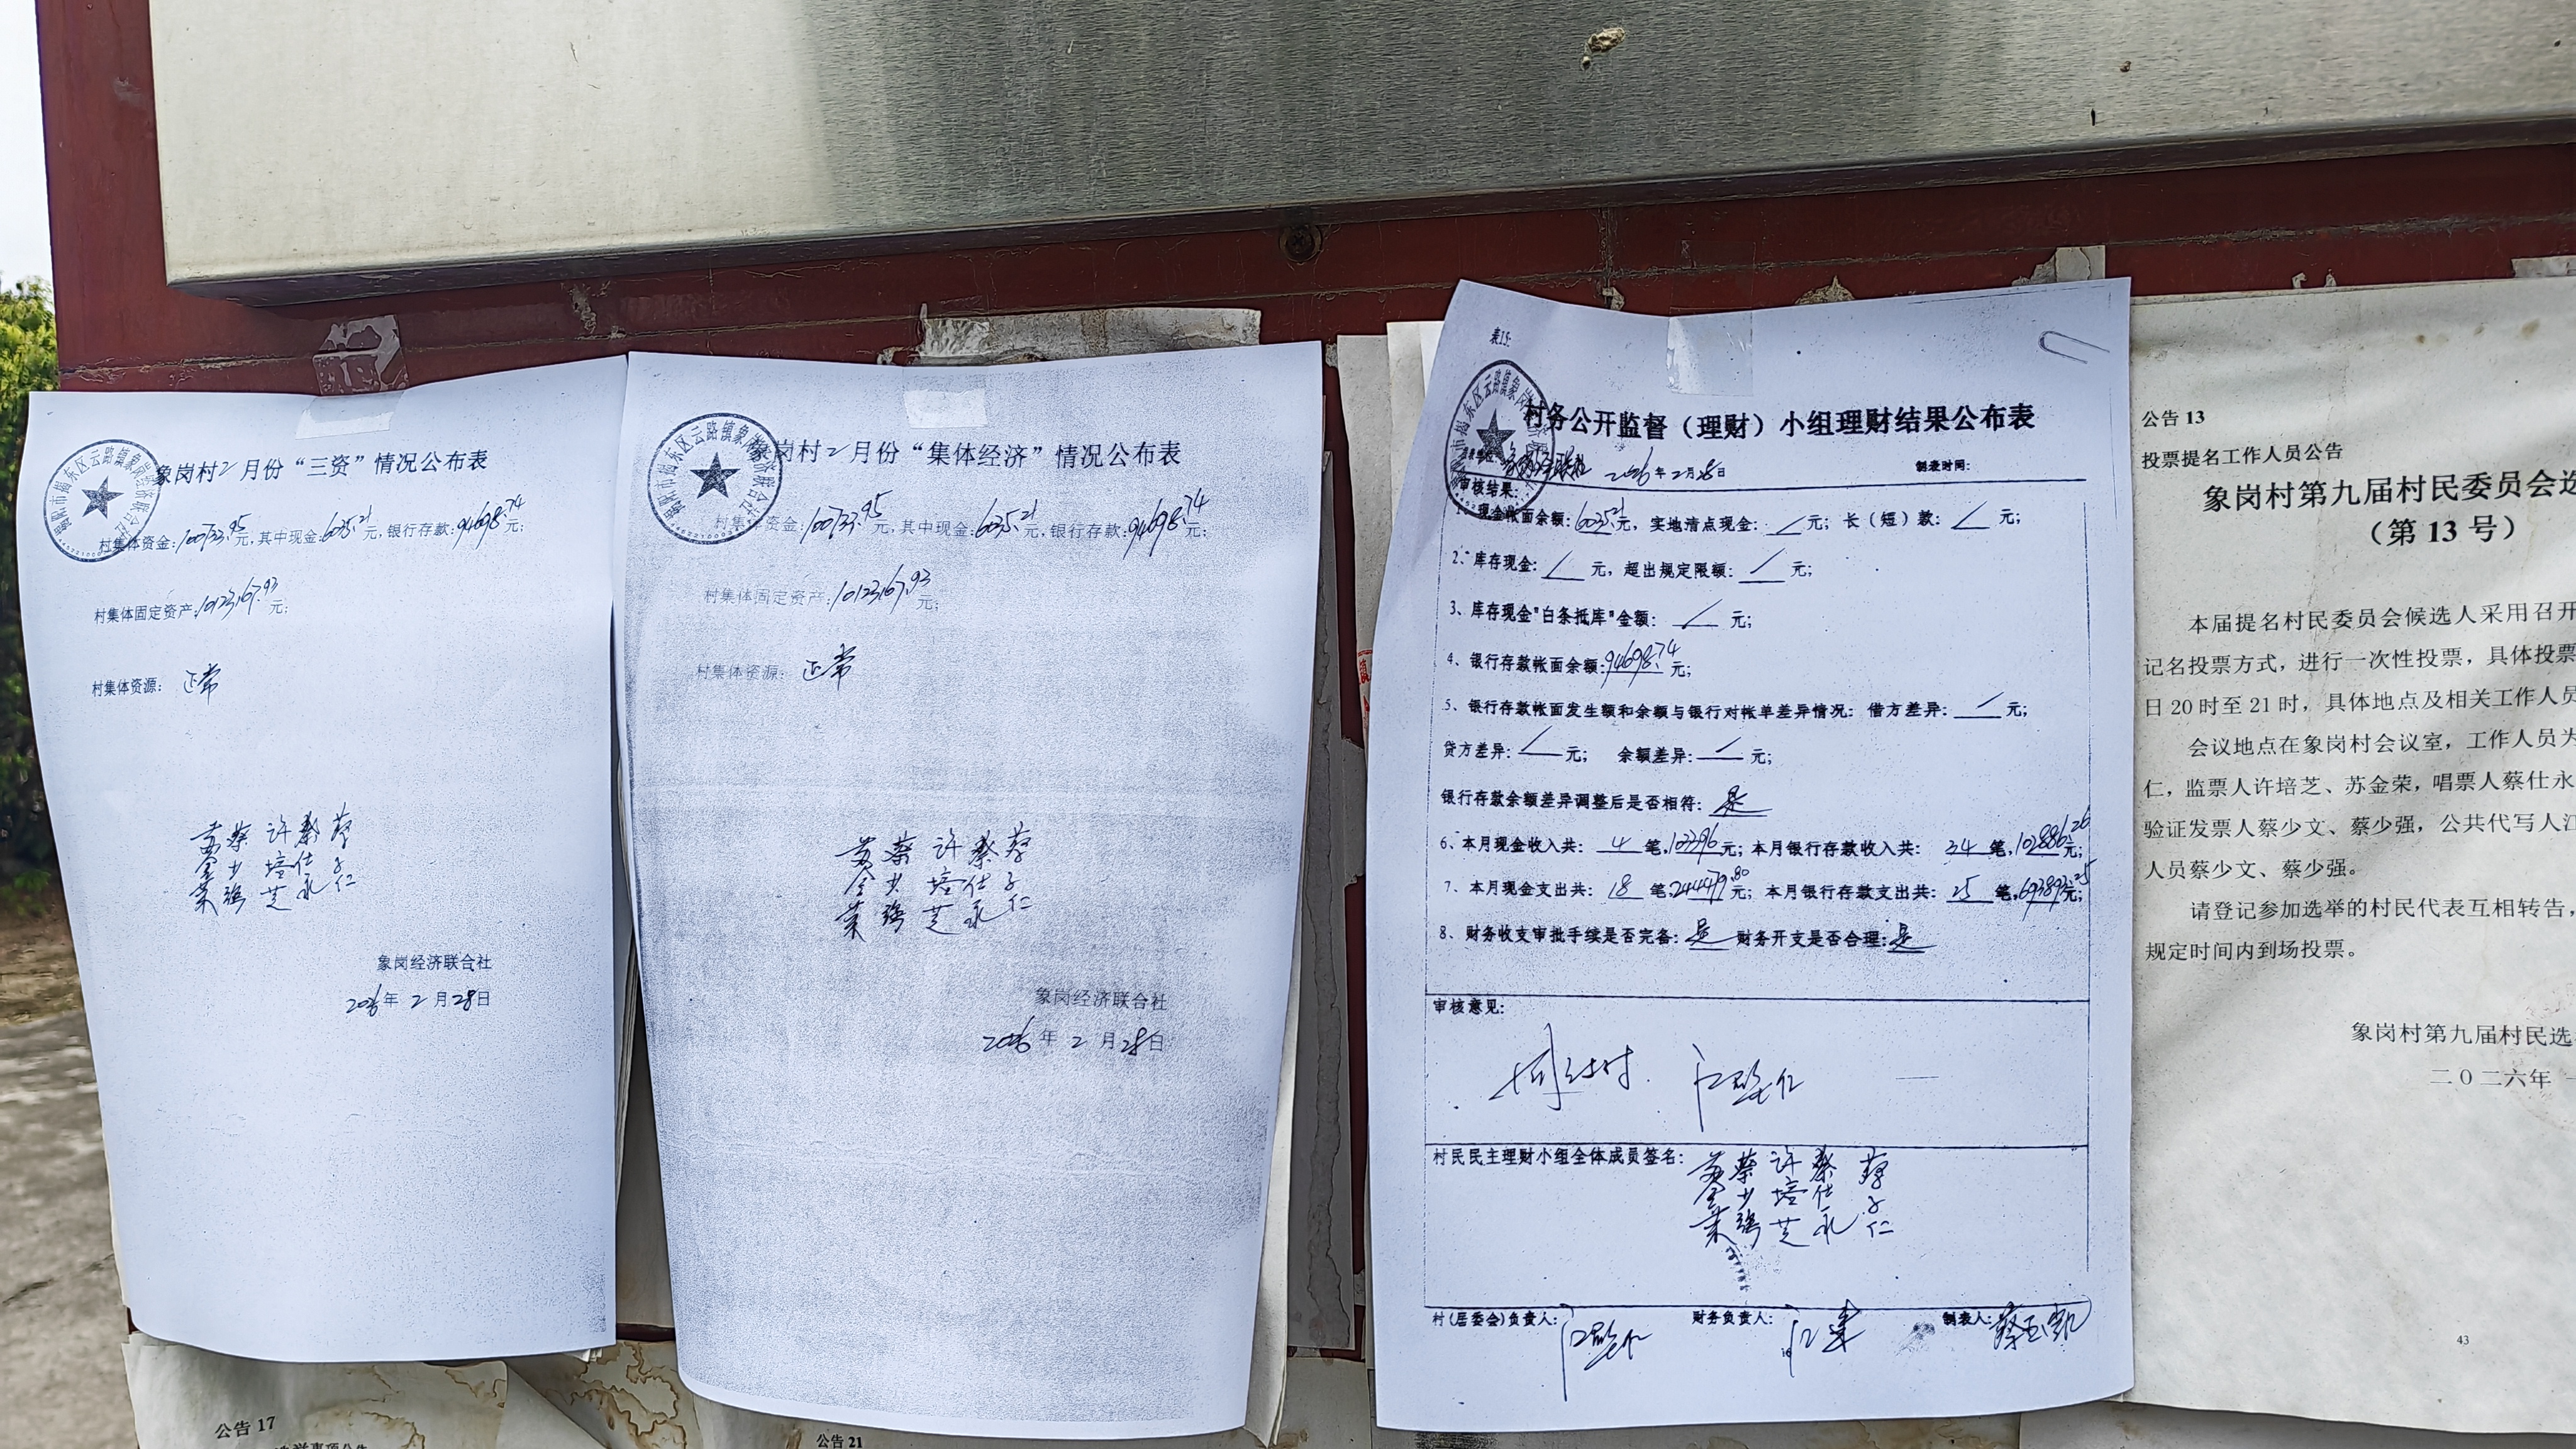 象岗村2月份“三资”情况公布表
村集体资金:100733.95元,其中现金:6035.21元,银行存款:94698.74元;
村集体固定资产:10123167.93元;
村集体资源: 正常
苏金荣 蔡少强 许培芝 蔡仕永 蔡子仁
象岗经济联合社
2026年2月28日
象岗村2月份“集体经济”情况公布表
村集体资金:100733.95元,其中现金:6035.21元,银行存款:94698.74元;
村集体固定资产:10123167.93元;
村集体资源: 正常
苏金荣 蔡少强 许培芝 蔡仕永 蔡子仁
象岗经济联合社
2026年2月28日
表15:
村务公开监督(理财)小组理财结果公布表
2026年2月28日 制表时间:
审核结果:
1、现金帐面余额:6035.21元,实地清点现金:/元;长(短)款:/元;
2、库存现金:/元,超出规定限额:/元;
3、库存现金"白条抵库"金额:/元;
4、银行存款帐面余额:94698.74元;
5、银行存款帐面发生额和余额与银行对帐单差异情况:借方差异:/元;
贷方差异:/元; 余额差异:/元;
银行存款余额差异调整后是否相符:是
6、本月现金收入共:4笔,103396元;本月银行存款收入共:34笔,102886.26元;
7、本月现金支出共:18笔,244479.80元;本月银行存款支出共:25笔,69389.25元;
8、财务收支审批手续是否完备:是 财务开支是否合理:是
审核意见:
村民民主理财小组全体成员签名:
苏金荣 蔡少强 许培芝 蔡仕永 蔡子仁
村(居委会)负责人: 财务负责人: 制表人:
公告13
投票提名工作人员公告
象岗村第九届村民委员会选
(第13号)
本届提名村民委员会候选人采用召开
记名投票方式,进行一次性投票,具体投票
日20时至21时,具体地点及相关工作人员
会议地点在象岗村会议室,工作人员为
仁,监票人许培芝、苏金荣,唱票人蔡仕永
验证发票人蔡少文、蔡少强,公共代写人江
人员蔡少文、蔡少强。
请登记参加选举的村民代表互相转告,
规定时间内到场投票。
象岗村第九届村民选
二〇二六年
43
公告17
公告21